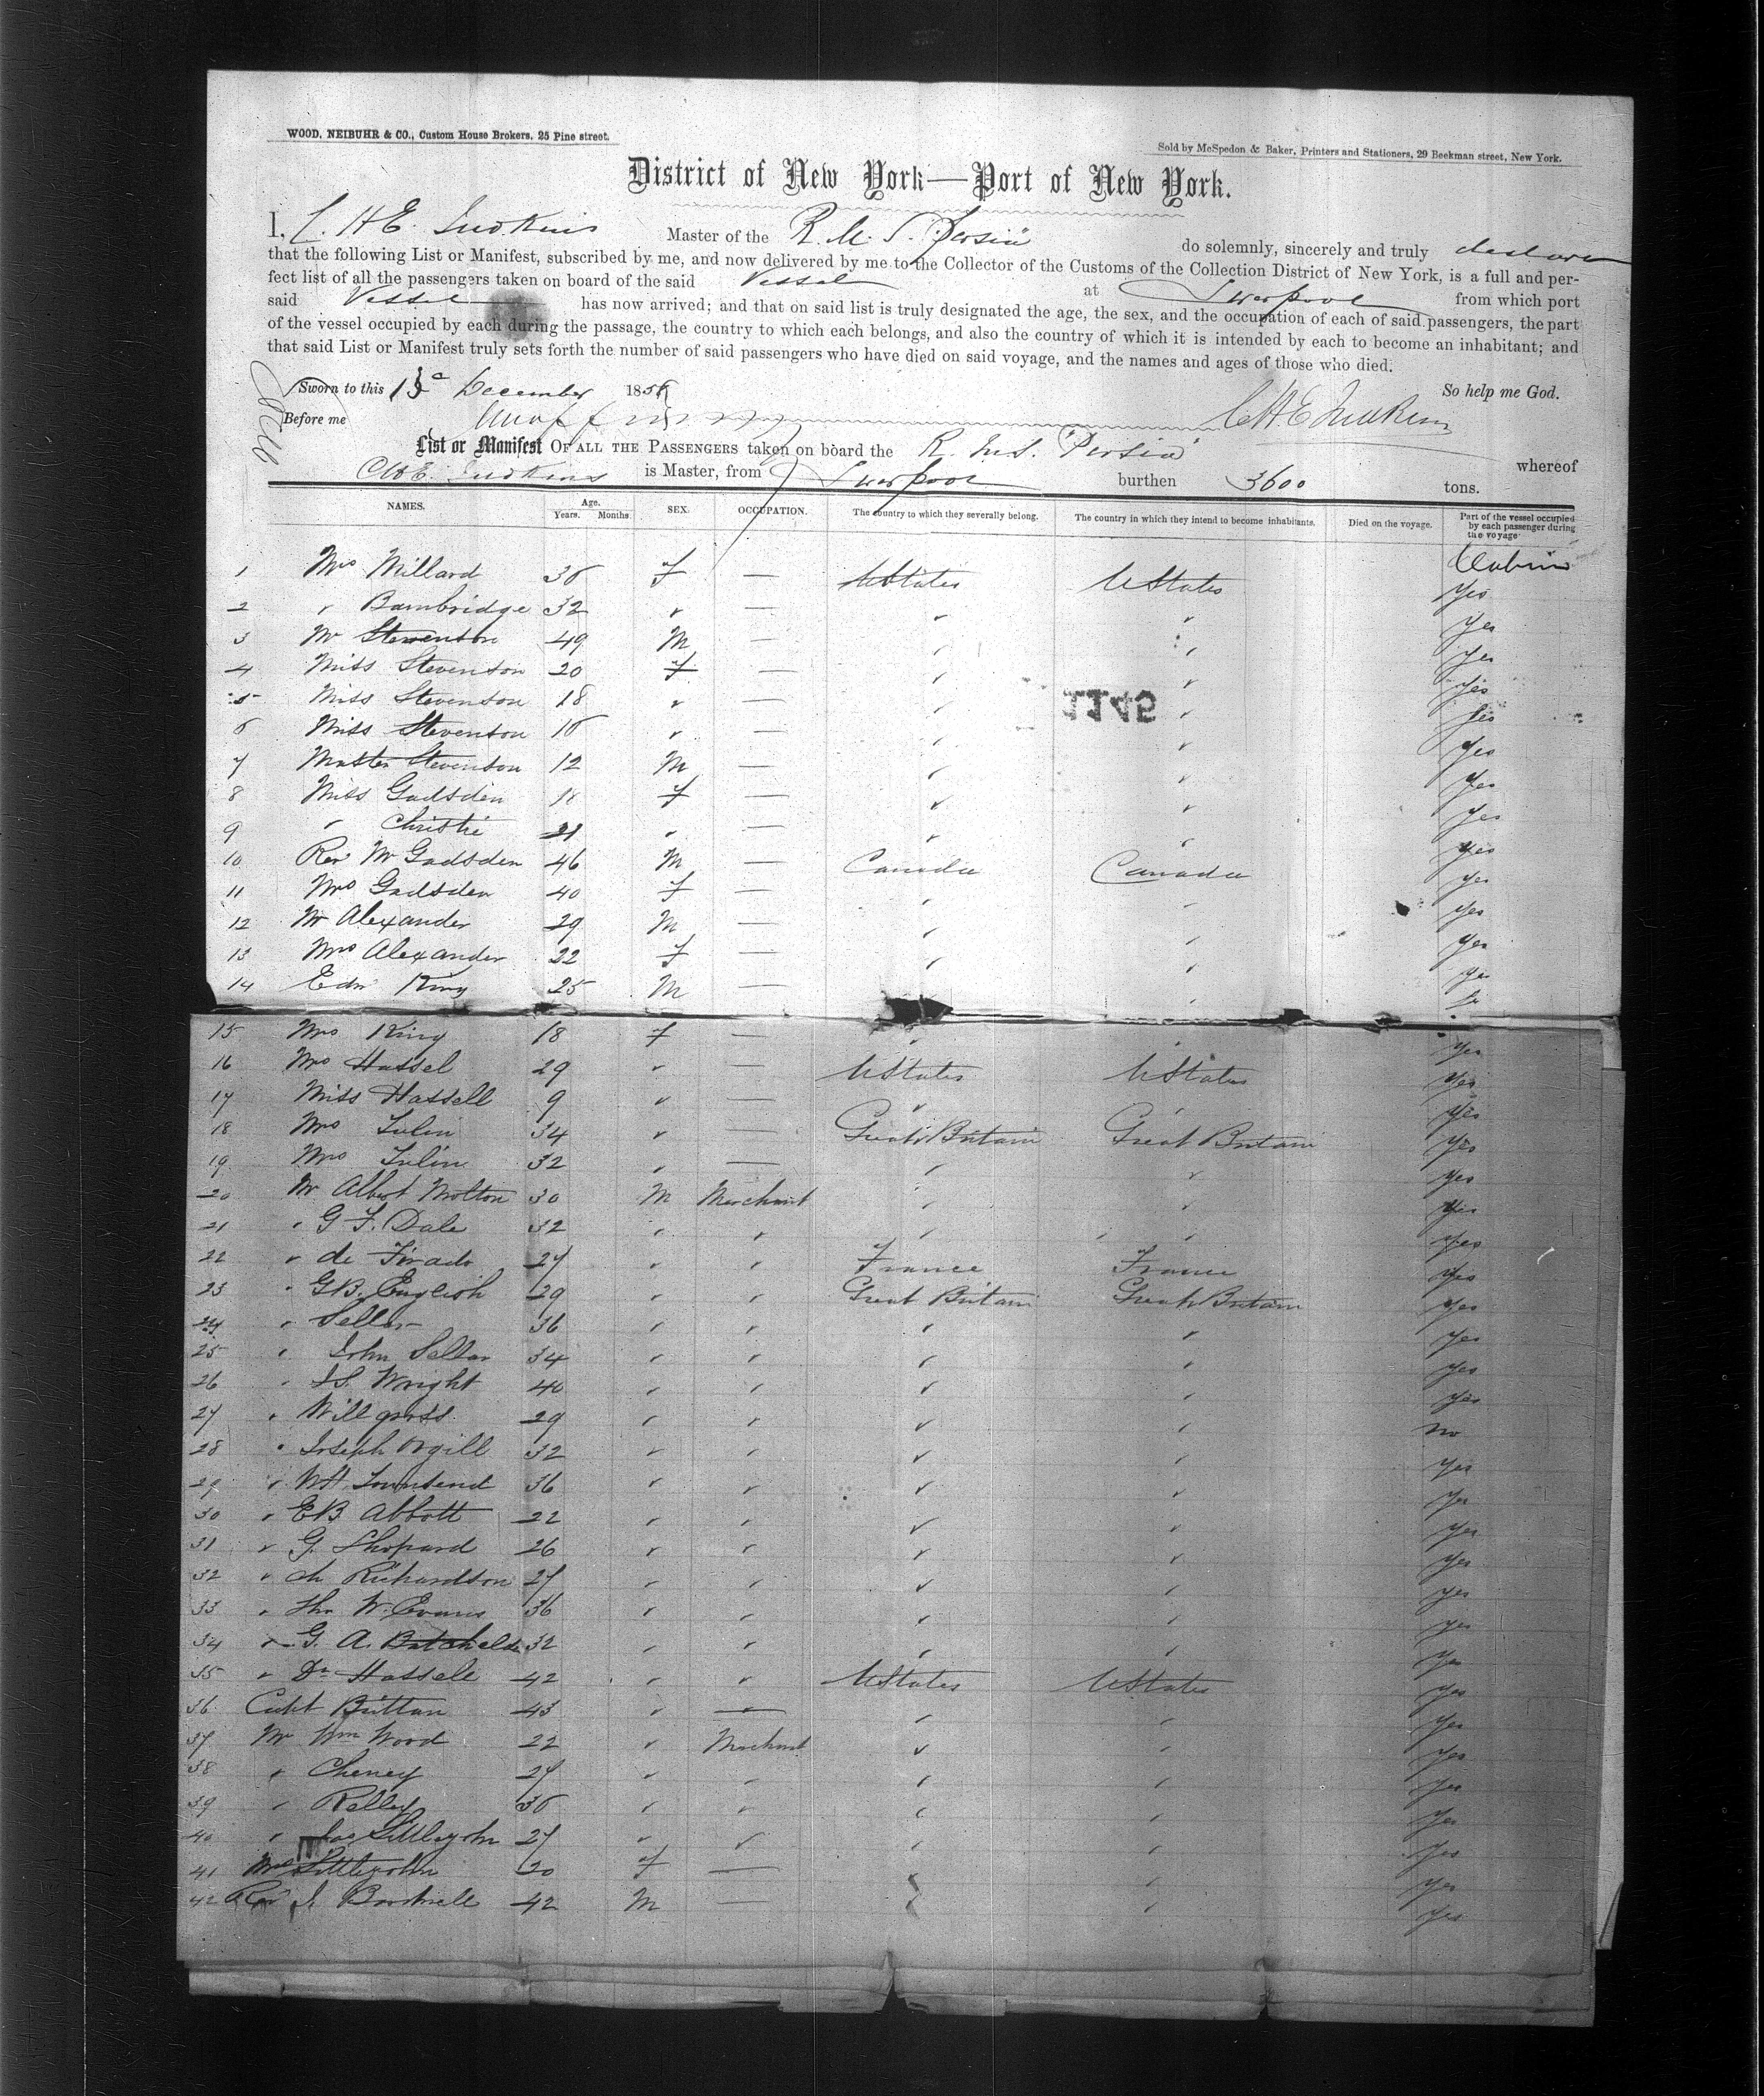 WOOD, NEIBUHR & CO., Custom House Brokers, 25 Pine street.
Sold by McSpedon & Baker, Printers and Stationers, 29 Beekman street, New York.
District of New York—Port of New York.
I, C. H. E. Judkins Master of the R. M. S. Persia do solemnly, sincerely and truly declare
that the following List or Manifest, subscribed by me, and now delivered by me to the Collector of the Customs of the Collection District of New York, is a full and per-
fect list of all the passengers taken on board of the said Vessel at Liverpool from which port
said Vessel has now arrived; and that on said list is truly designated the age, the sex, and the occupation of each of said passengers, the part
of the vessel occupied by each during the passage, the country to which each belongs, and also the country of which it is intended by each to become an inhabitant; and
that said List or Manifest truly sets forth the number of said passengers who have died on said voyage, and the names and ages of those who died.
Sworn to this December 185 So help me God.
Before me CHE Judkins
List or Manifest OF ALL THE PASSENGERS taken on board the R. M. S. "Persia" whereof
CHE Judkins is Master, from Liverpool burthen 3600 tons.
NAMES. Age. Years. Months. SEX. OCCUPATION. The country to which they severally belong. The country in which they intend to become inhabitants. Died on the voyage. Part of the vessel occupied by each passenger during the voyage
Cabin
1 Mrs Millard f — U States U States Yes
2 " Bambridge 32 " — " " Yes
3 Mr Stevenson 49 M — " " Yes
4 Miss Stevenson 20 f — " " Yes
5 Miss Stevenson 18 " — " " Yes
6 Miss Stevenson 16 " — " " Yes
7 Master Stevenson 12 M — " " Yes
8 Miss Gadsden 18 f — " " Yes
9 " Christie 21 " — " " Yes
10 Rev Mr Gadsden 46 M — Canada Canada Yes
11 Mrs Gadsden 40 f — " " Yes
12 Mr Alexander 29 M — " " Yes
13 Mrs Alexander 22 f — " " Ye
14 Edw King 25 M — "
15 Mrs King 18 f — " " Yes
16 Mrs Hassel 29 " — U States U States Yes
17 Miss Hassell 9 " — " " Yes
18 Mrs 34 " — Great Britain Great Britain Yes
19 Mrs 32 " — " " Yes
20 Mr Albert Molton 30 M Merchant " " Yes
21 " G F. Dale 32 " " " " Yes
22 " de Tirado 27 " " France France Yes
23 " G.B. English 29 " " Great Britain Great Britain Yes
24 " Sellar 36 " " " " Yes
25 " John Sellar 34 " " " " Yes
26 " J.S. Wright 40 " " " " Yes
27 " Willgross 29 " " " " No
28 " Joseph Orgill 32 " " " " Yes
29 " WH Townsend 36 " " " " Yes
30 " EB Abbott 22 " " " " Yes
31 " G. Shepard 26 " " " " Yes
32 " Richardson 27 " " " " Yes
33 " Thos W. Evans 36 " " " " Yes
34 " G. A. Batchelder 32 " " " " Yes
35 " Dr Hassele 42 " " U States U States Yes
36 Capt Britton 43 " — " " Yes
37 Mr Wm Wood 22 " Merchant " " Yes
38 " Cheney 27 " " " " Yes
39 " Kelley " " " " Yes
40 " Jas Littlejohn 27 " " " " Yes
41 Mrs Littlejohn 20 f — " Yes
42 Rev J. 42 M — " Yes
1145